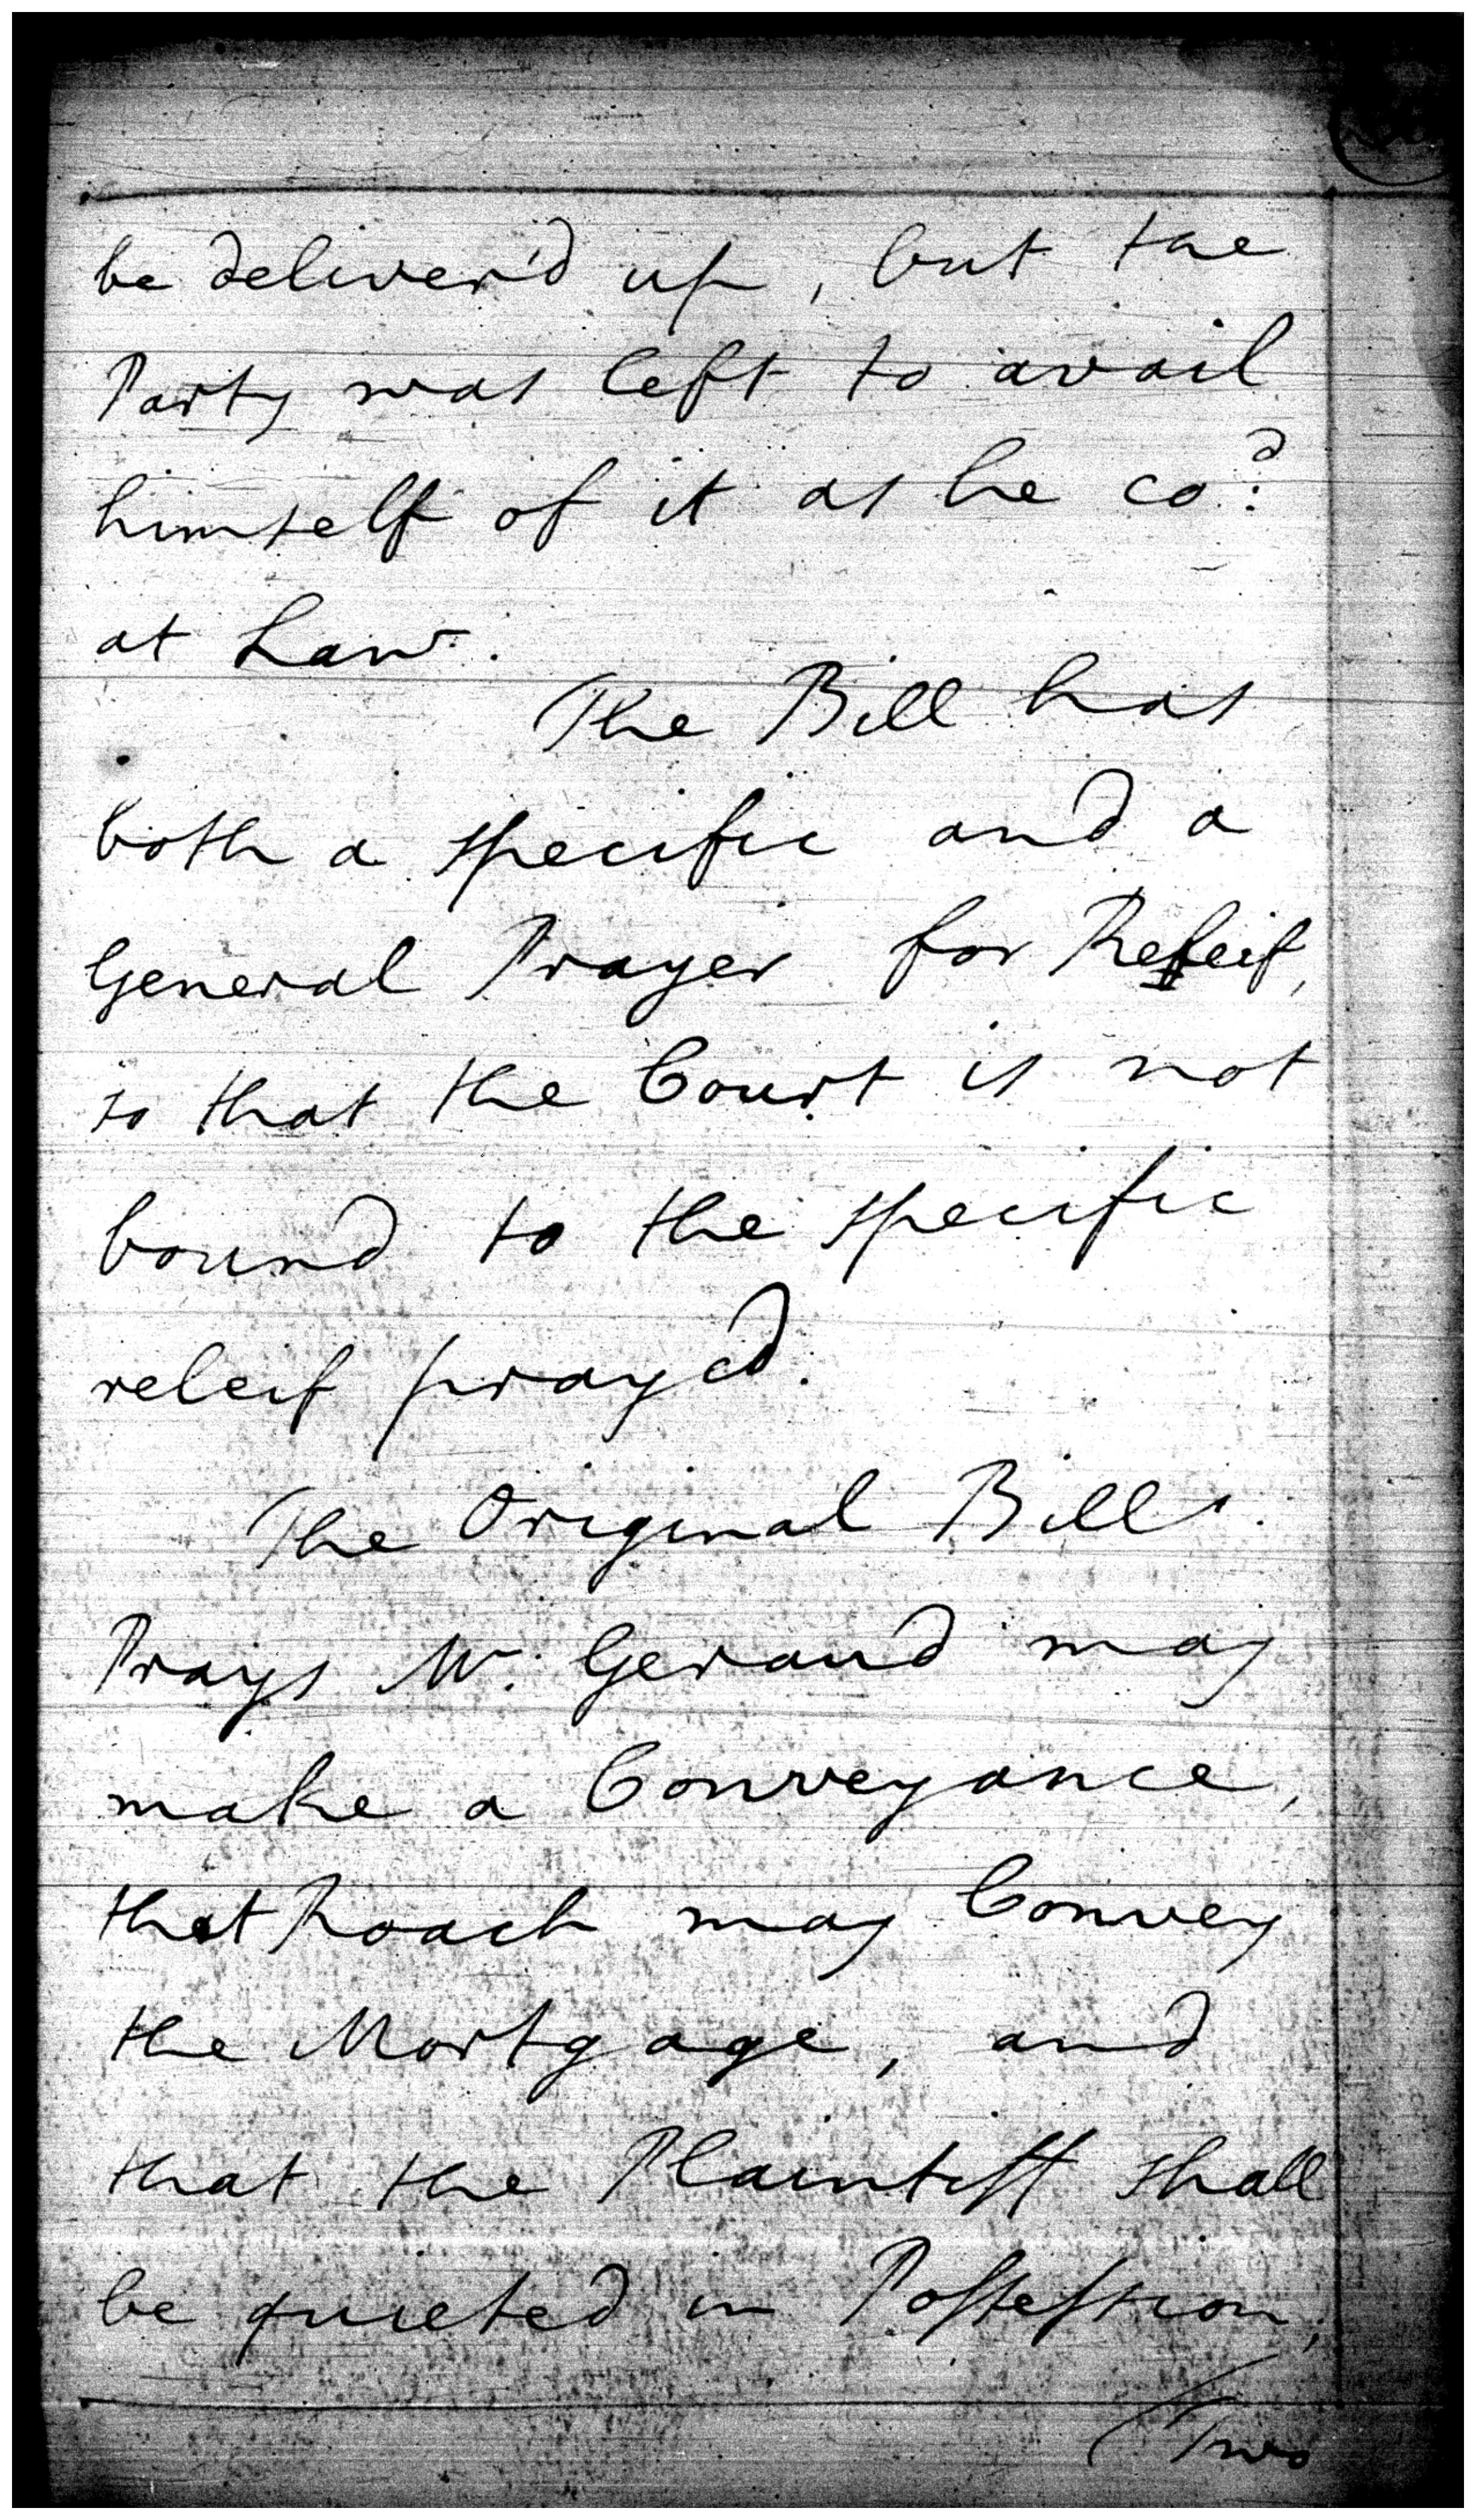 be deliver'd up, but the
Party was left to avail
himself of it as he co:d
at Law.
The Bill has
both a specific and a
General Prayer for Releif,
so that the Court is not
bound to the specific
releif pray'd.
The Original Bill
Prays Mr. Geraud may
make a Conveyance,
that Roach may Convey
the Mortgage, and
that the Plaintiff shall
be quieted in Possession,
/Two